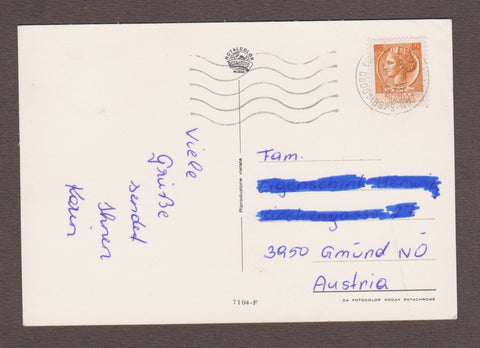 ROTALCOLOR
MILANO
60
Viele
Grüße
sendet
Ihnen
Karin
Riproduzione vietata
Fam.
3950 Gmünd NÖ
Austria
7104-F
DA FOTOCOLOR KODAK EKTACHROME